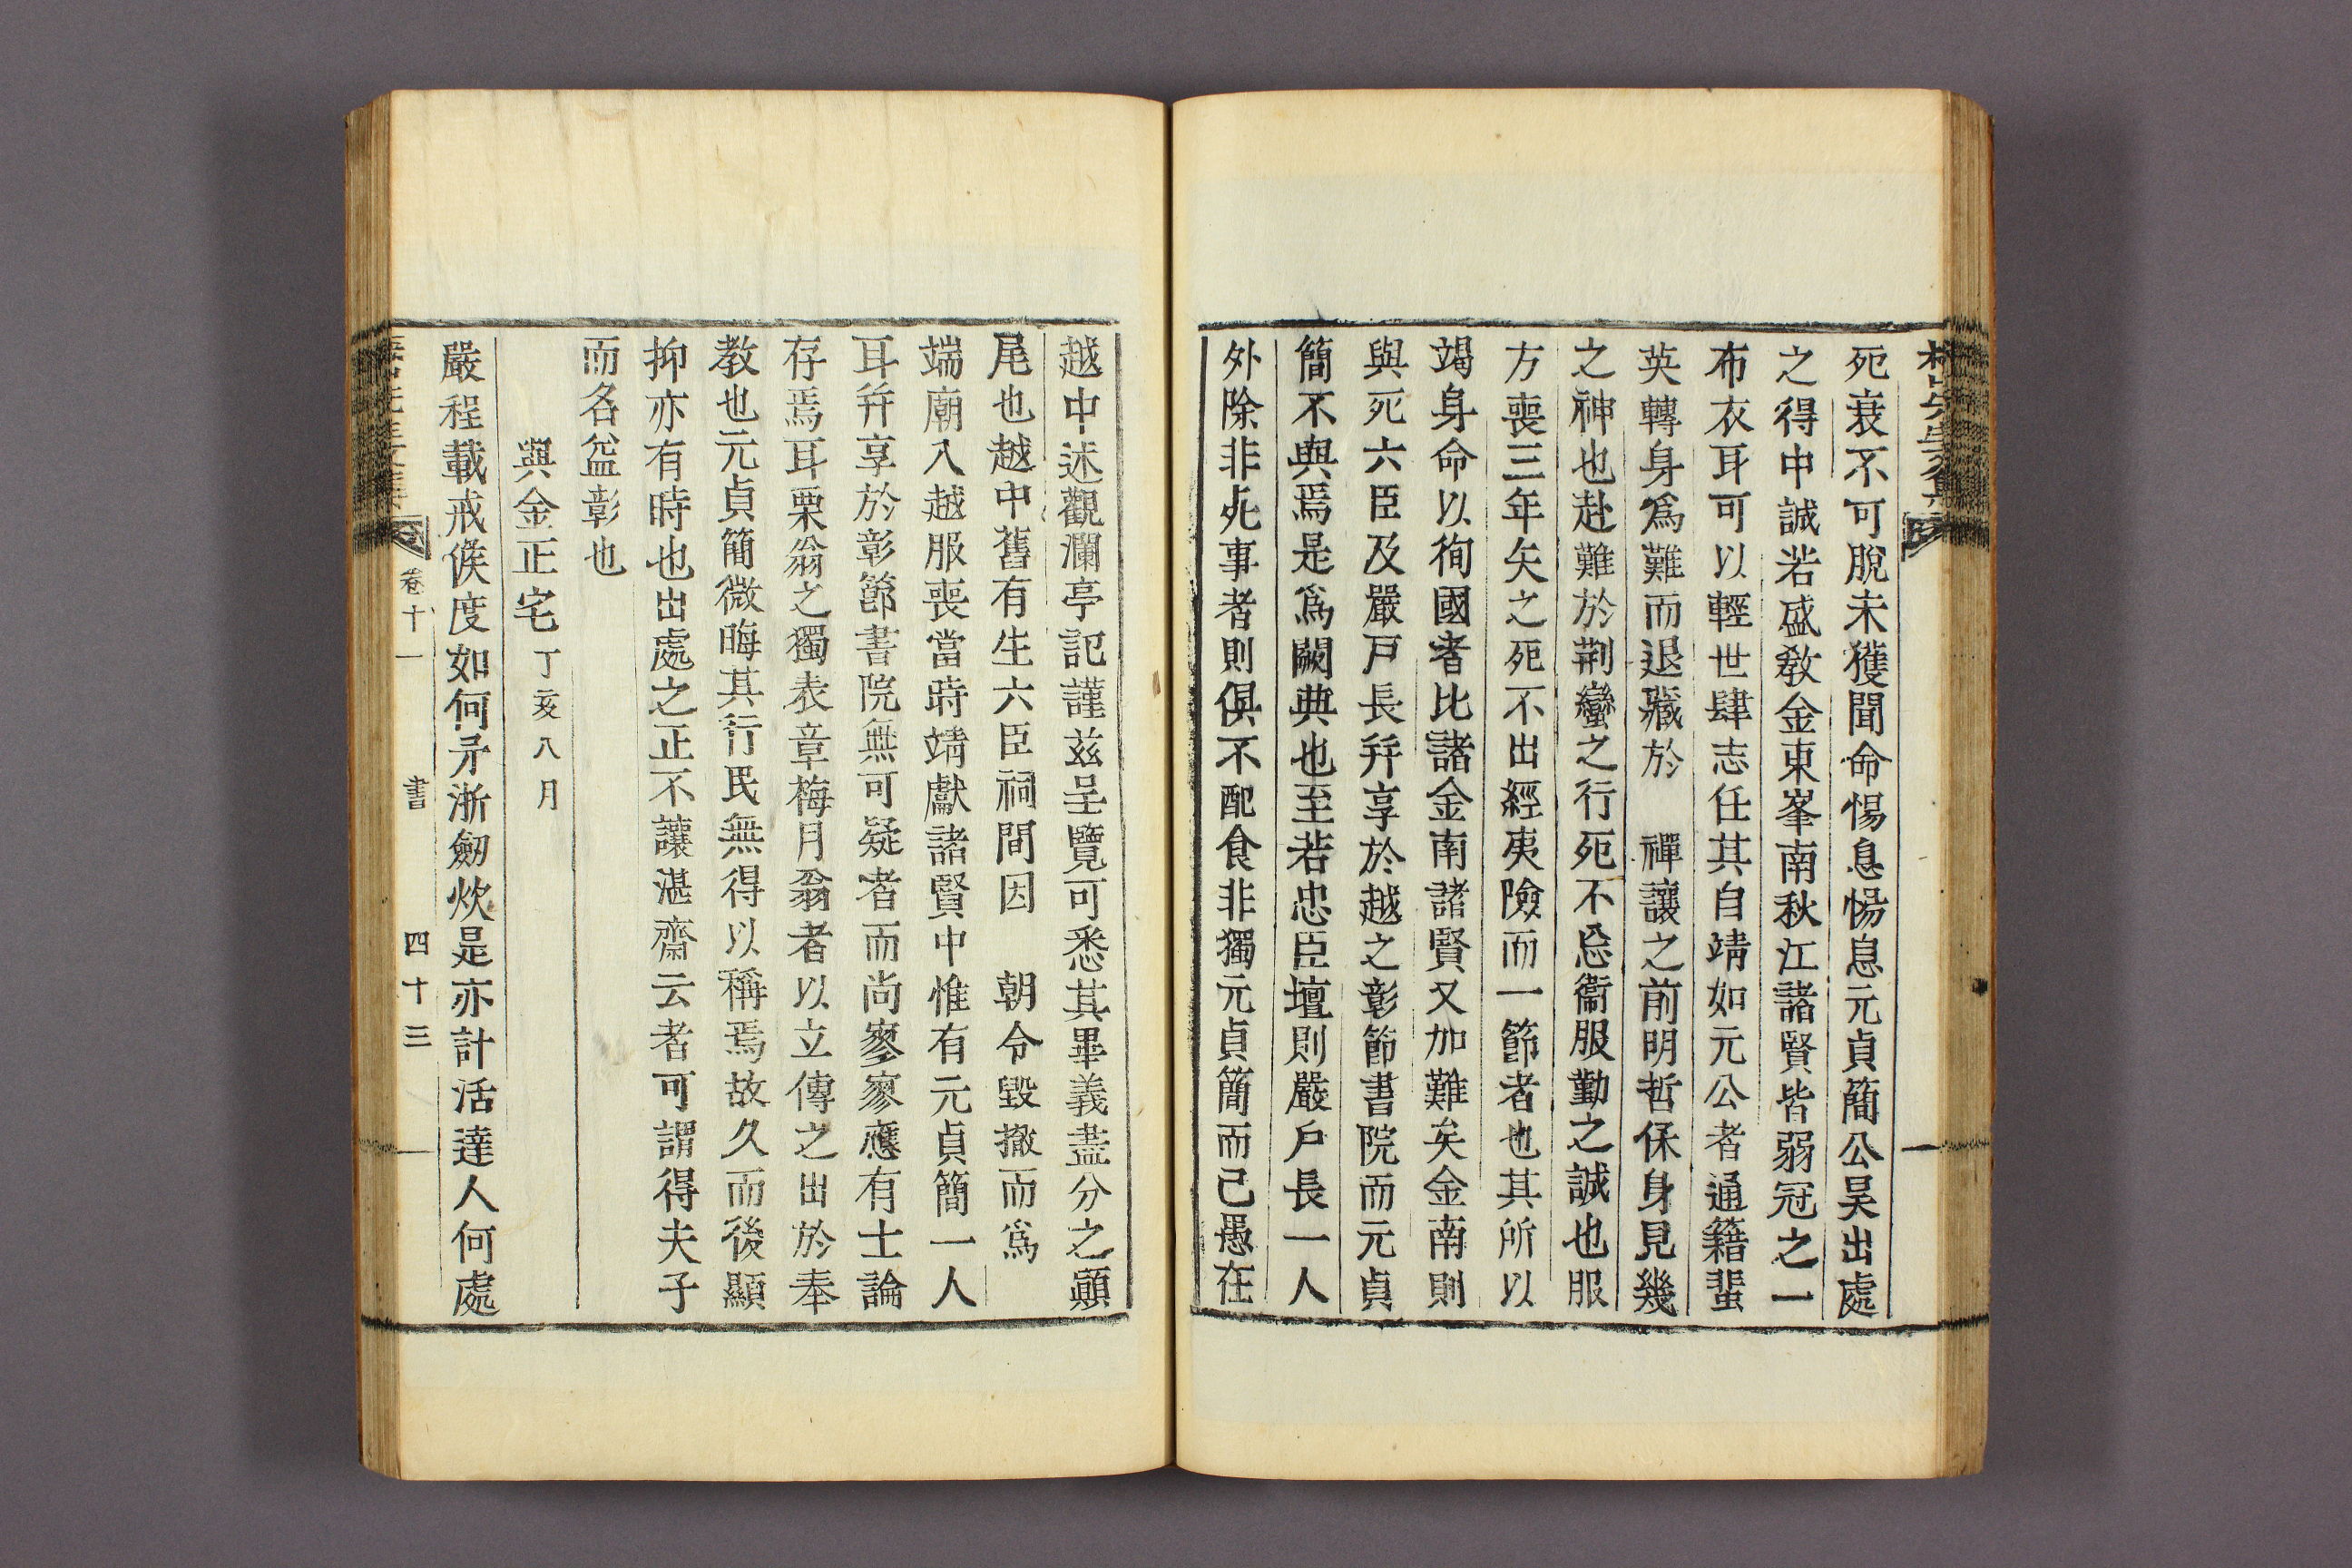 死衰不可脫未獲聞命惕息惕息元貞簡公昊出處
之得中誠若盛敎金東峯南秋江諸賢皆弱冠之一
布衣耳可以輕世肆志任其自靖如元公者通籍蜚
英轉身爲難而退藏於 禪讓之前明哲保身見幾
之神也赴難於荆蠻之行死不忘衞服勤之誠也服
方喪三年矢之死不出經夷險而一節者也其所以
竭身命以徇國者比諸金南諸賢又加難矣金南則
與死六臣及嚴戶長幷享於越之彰節書院而元貞
簡不與焉是爲闕典也至若忠臣壇則嚴戶長一人
外除非死事者則俱不配食非獨元貞簡而已愚在
越中述觀瀾亭記謹玆呈覽可悉其畢義盡分之顚
尾也越中舊有生六臣祠間因 朝令毀撤而爲
端廟入越服喪當時靖獻諸賢中惟有元貞簡一人
耳幷享於彰節書院無可疑者而尚寥寥應有士論
存焉耳栗翁之獨表章梅月翁者以立傳之出於奉
教也元貞簡微晦其行民無得以稱焉故久而後顯
抑亦有時也出處之正不讓湛齋云者可謂得夫子
而名益彰也
與金正宅 丁亥八月
嚴程載戒候度如何矛淅劒炊是亦計活達人何處
卷十一 書 四十三